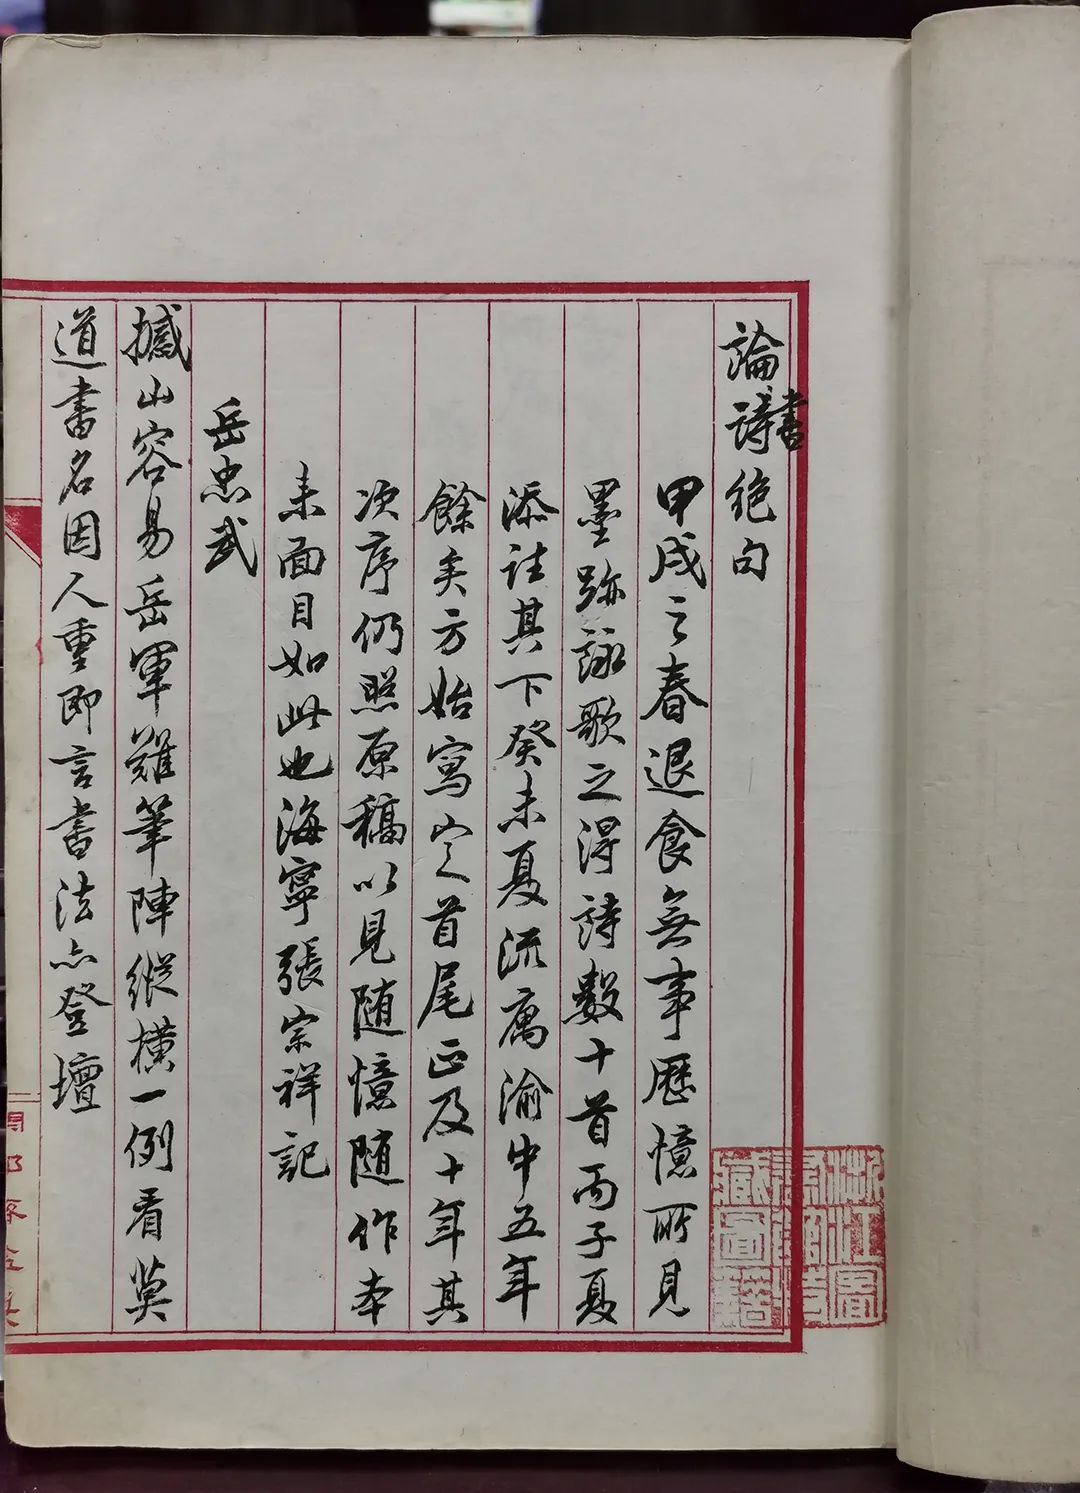 論詩絕句
書
甲戌之春退食無事歷憶所見
墨跡詠歌之得詩數十首丙子夏
添註其下癸未夏流寓渝中五年
餘矣方始寫定首尾正及十年其
次序仍照原稿以見随憶随作本
来面目如此也海寧張宗祥記
岳忠武
撼山容易岳軍難筆陣縱橫一例看莫
道書名因人重即言書法亦登壇
浙江圖
書館特
藏圖籍